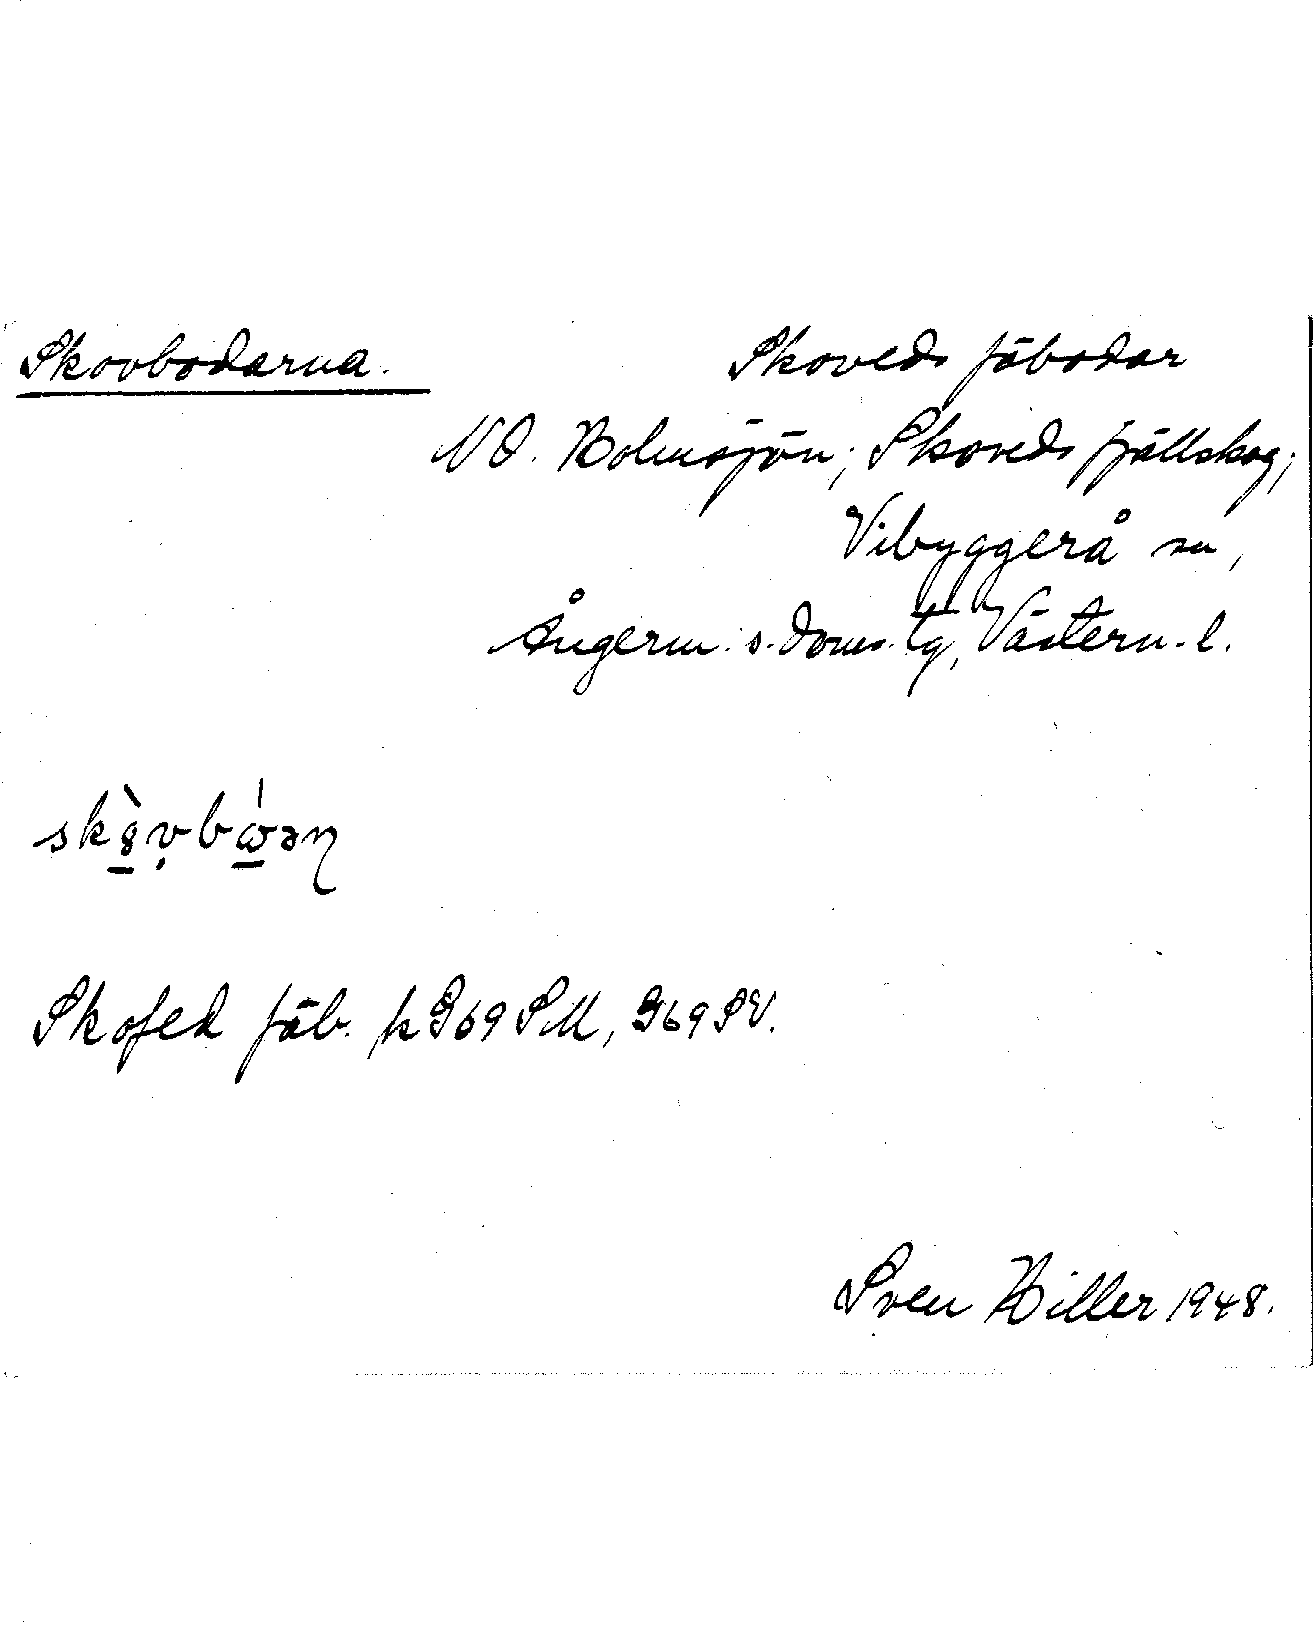 Skovbodarna. Skoveds fäbodar
NO. Holmsjön; Skoveds fjällskog;
Vibyggerå sn,
Ångerm. s. doms. tg, Västern. l.
Skofed fäb. k G69 SM, G69 SV.
Sven Hiller 1948.